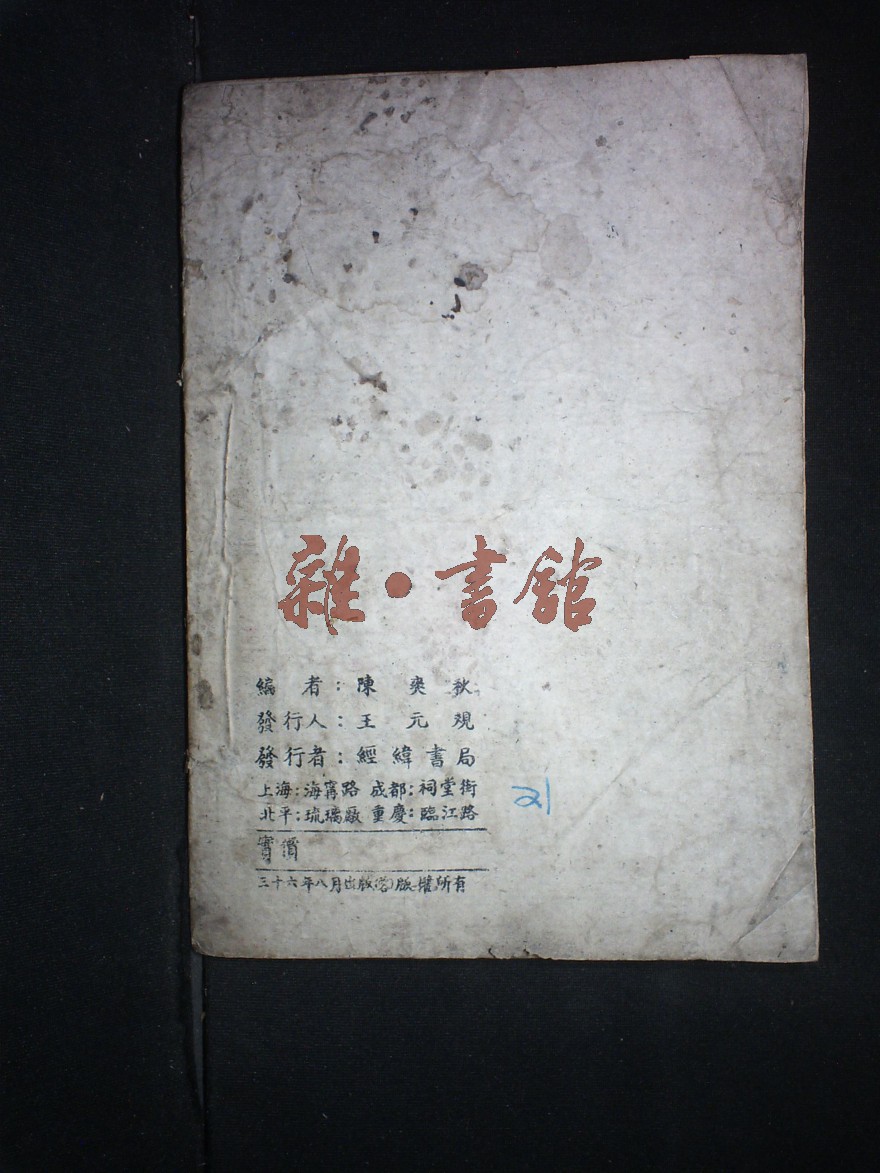 雜·書館
編 者：陳 爽 秋
發行人：王 元 觀
發行者：經緯書局
上海：海甯路 成都：祠堂街
北平：琉璃廠 重慶：臨江路
21
實價
三十六年八月出版(蓉)版權所有